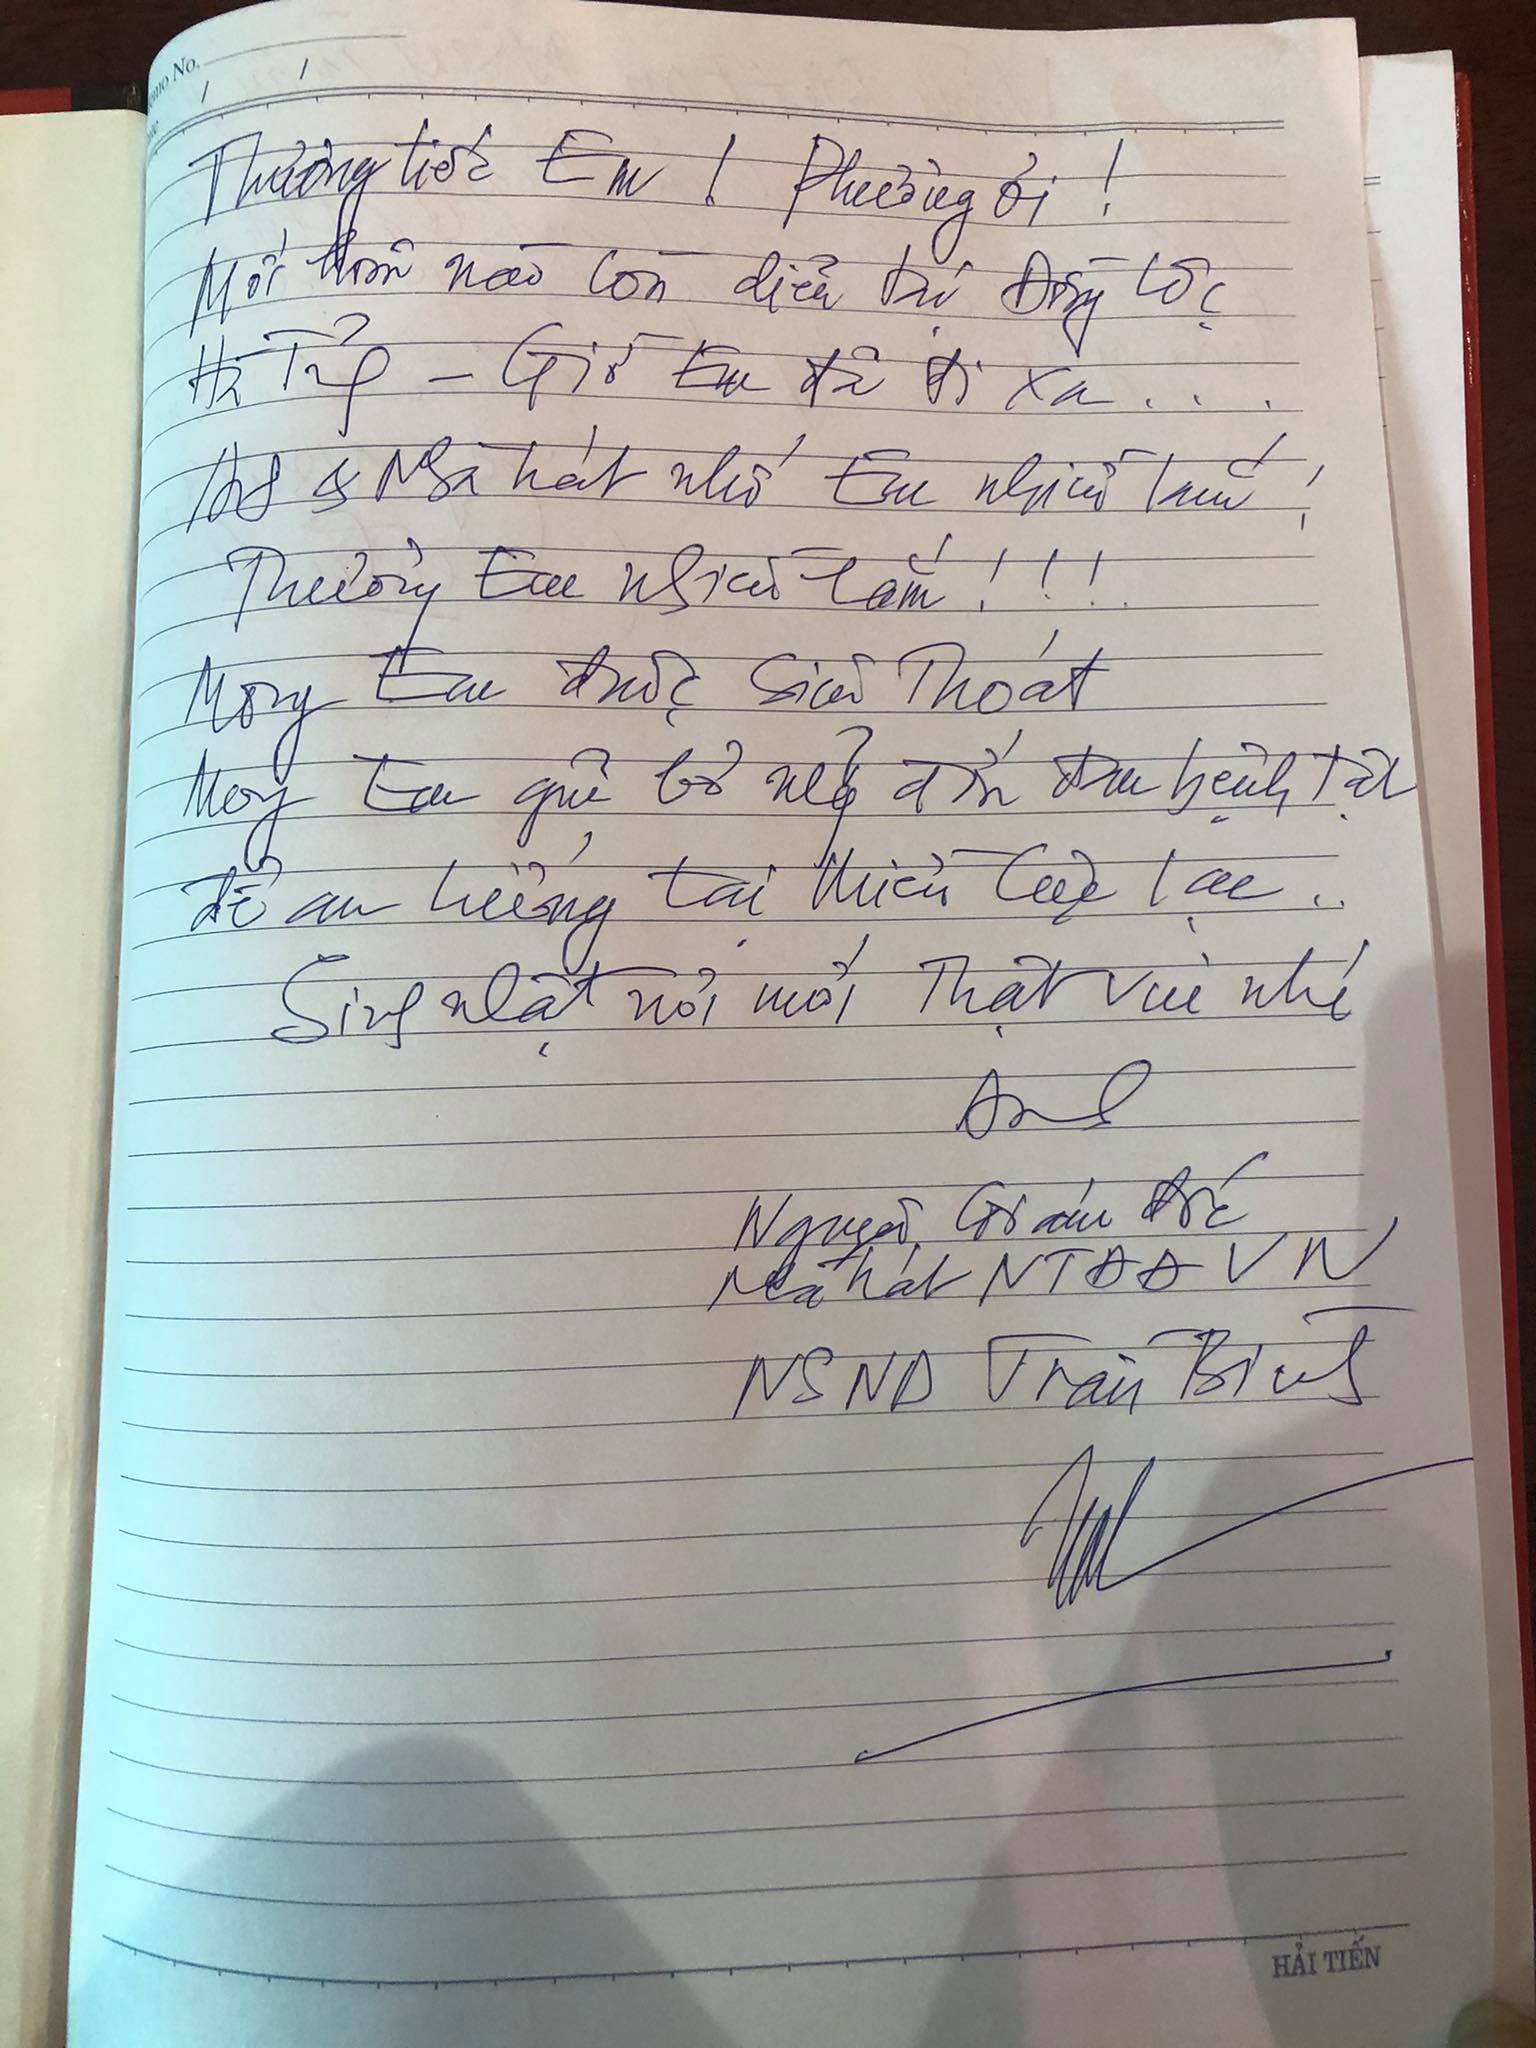 Memo No.
/ /
Thương tiếc Em! Phương ơi!
Mới hôm nào còn diễn tại Đồng Lộc
Hà Tĩnh - Giờ Em đã đi xa...
Anh & Nhà hát nhớ Em nhiều lắm!
Thương Em nhiều lắm!!!
Mong Em được siêu Thoát
Mong Em giũ bỏ mọi đớn đau bệnh tật
để an hưởng tại miền Cực lạc..
Sinh nhật nơi mới Thật vui nhé
Anh
Nguyên Giám đốc
Nhà hát NTĐĐVN
NSND Trần Bình
HẢI TIẾN